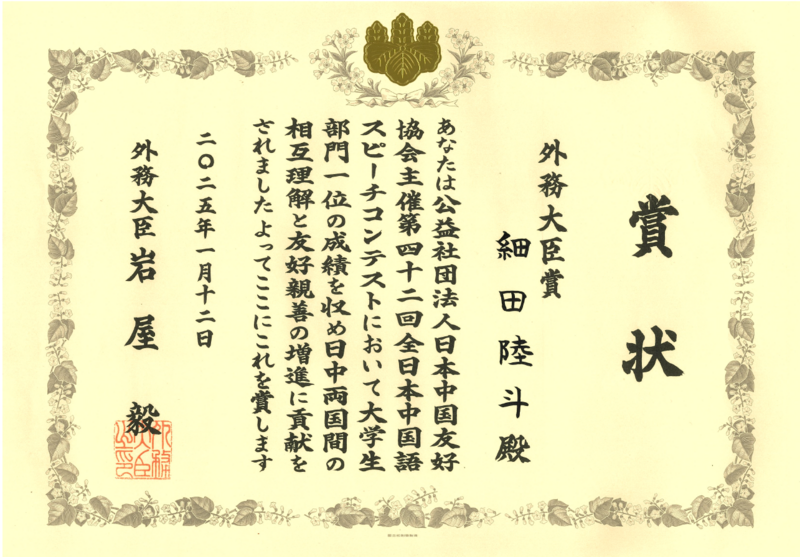 賞状
外務大臣賞
細田陸斗殿
あなたは公益社団法人日本中国友好
協会主催第四十二回全日本中国語
スピーチコンテストにおいて大学生
部門一位の成績を収め日中両国間の
相互理解と友好親善の増進に貢献を
されましたよってここにこれを賞します
二〇二五年一月十二日
外務大臣岩屋毅